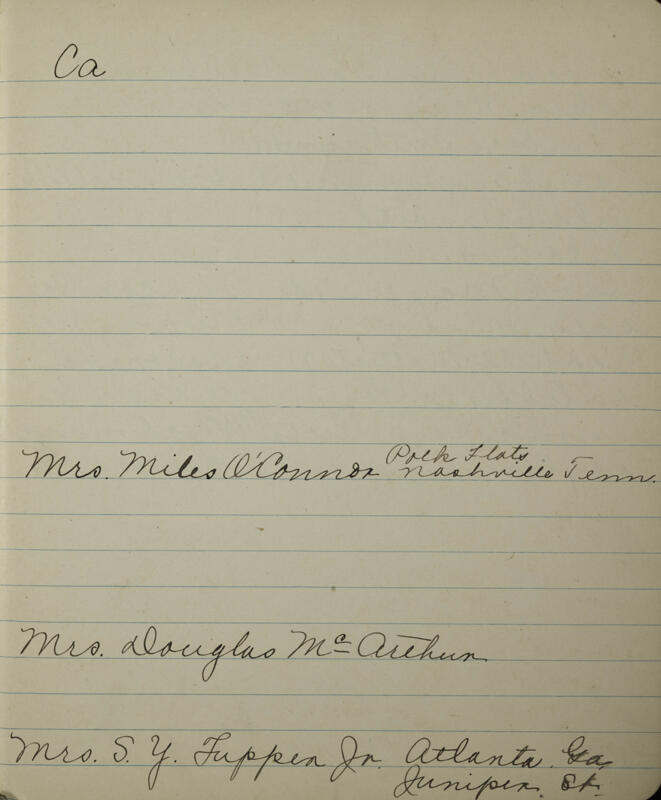 Ca
Polk Flats
Mrs. Miles O'Connor Nashville Tenn.
Mrs. Douglas McArthur
Mrs. S. Y. Tupper Jr. Atlanta. Ga.
Juniper. St.